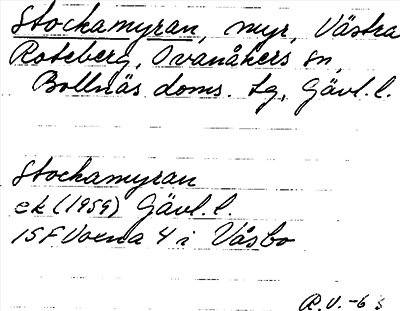 Stockamyran, myr, Västra
Roteberg, Ovanåkers sn,
Bollnäs doms. tg, Gävl. l.
Stockamyran
ek (1959) Gävl. l.
15F Voxna 4 i Våsbo
R.V. -6